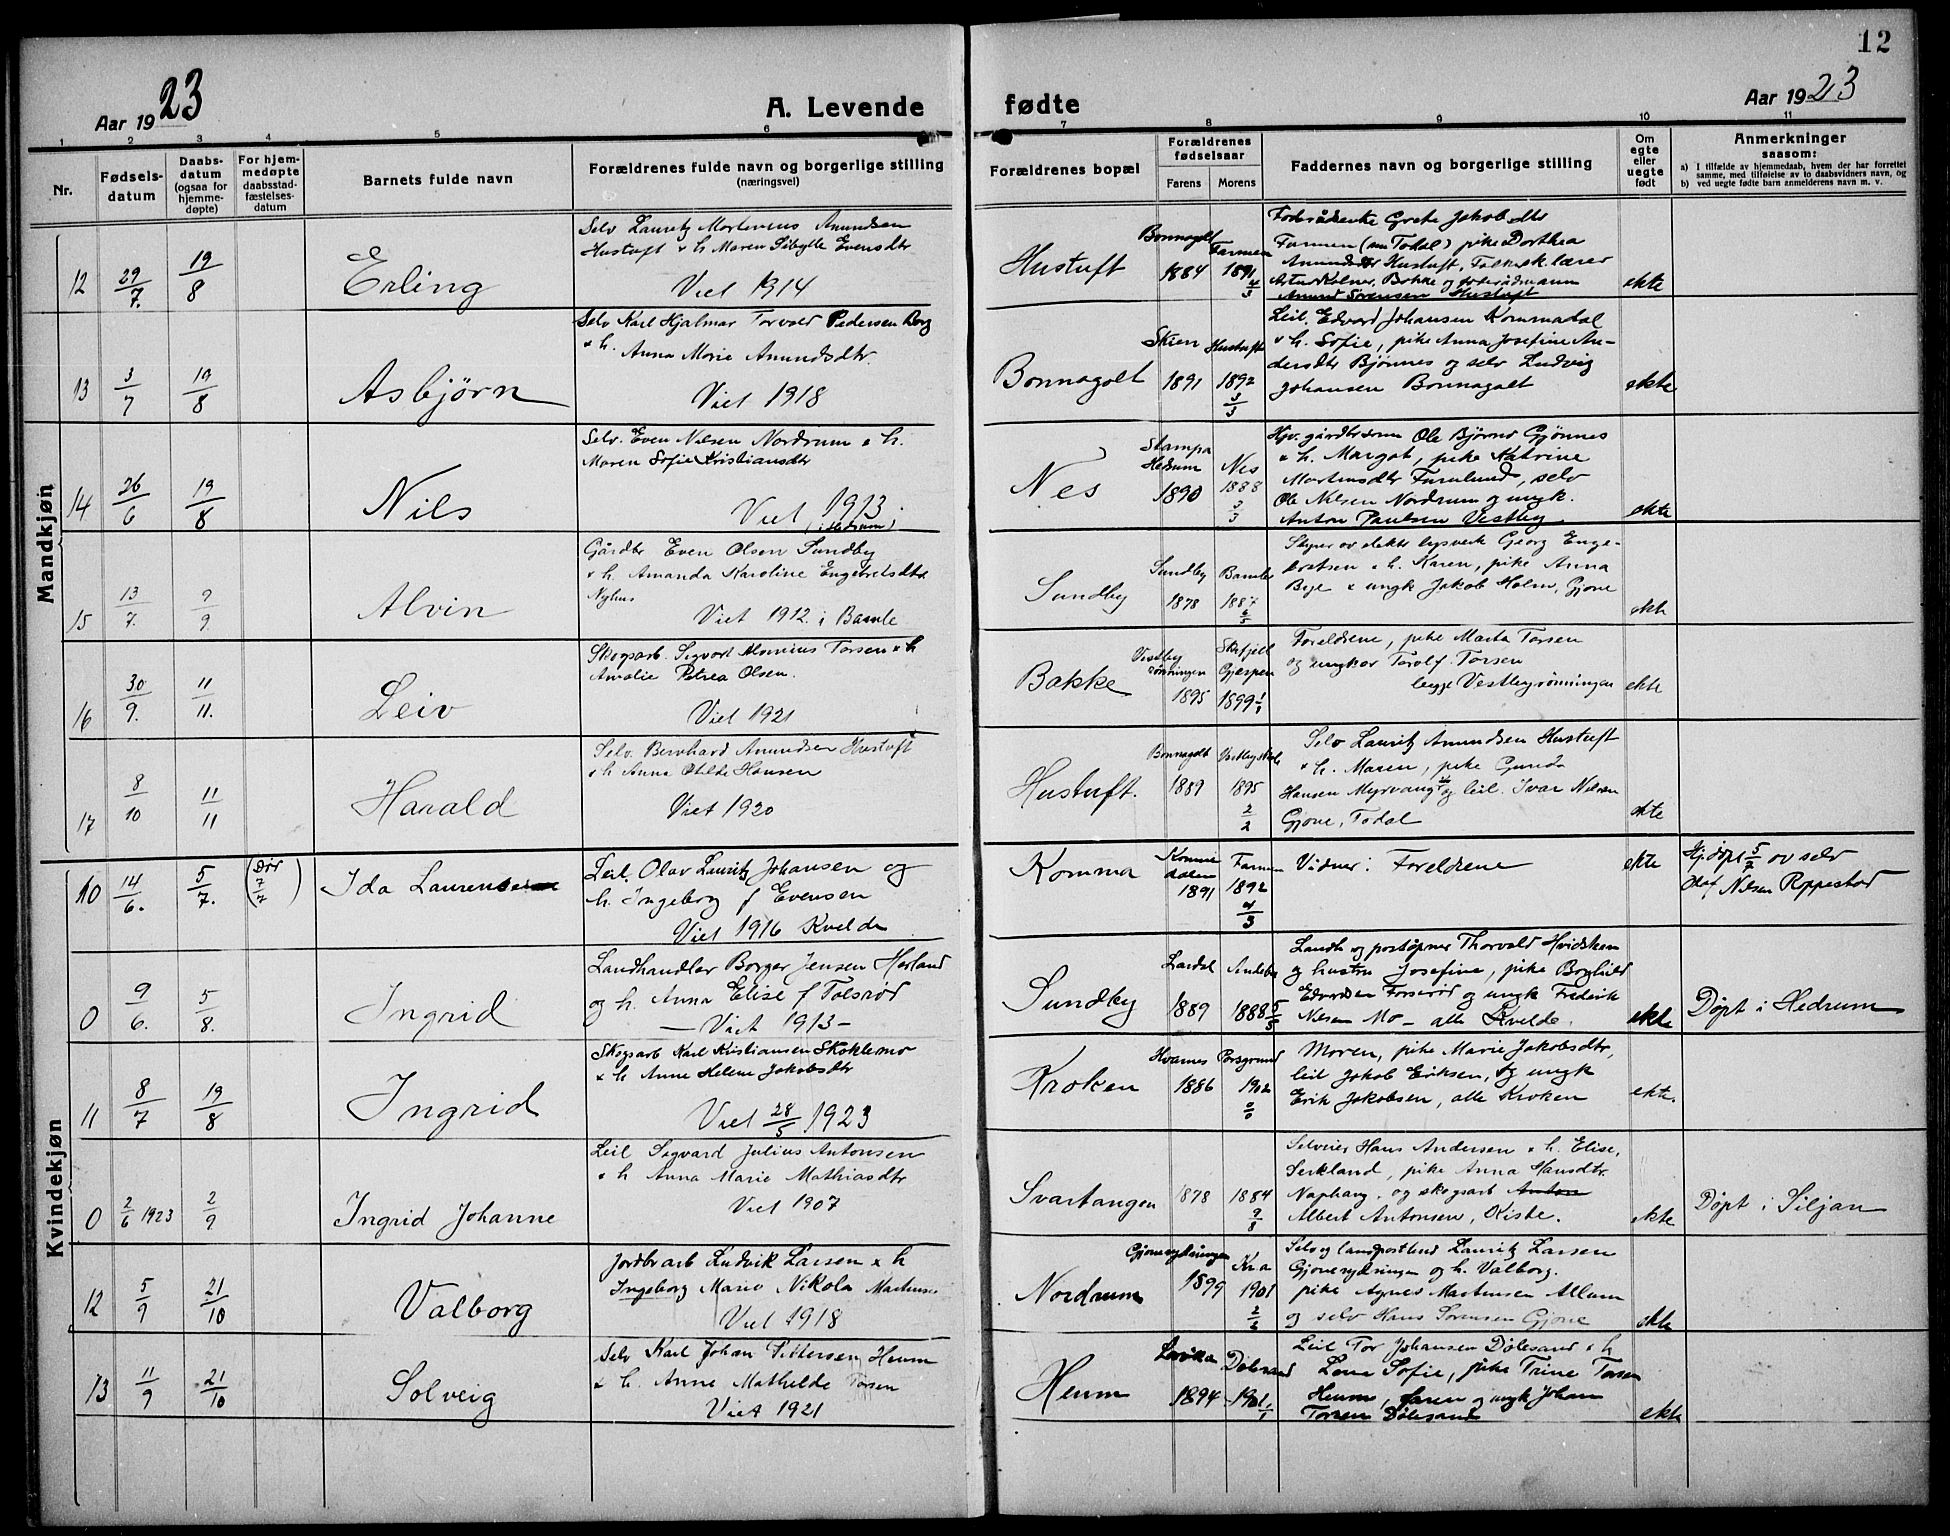 12
Aar 1923
A. Levende
fødte
Aar 1923
1 2 3 4 5 6 7 8 9 10 11
Nr.
Fødsels-
datum
Daabs-
datum
(ogsaa for
hjemme-
døpte)
For hjem-
medøpte
daabsstad-
fæstelses-
datum
Barnets fulde navn
Forældrenes fulde navn og borgerlige stilling
(næringsvei)
Forældrenes bopæl
Forældrenes
fødselsaar
Farens
Morens
Faddernes navn og borgerlige stilling
Om
egte
eller
uegte
født
Anmerkninger
saasom:
a) I tilfælde av hjemmedaab, hvem der har forrettet
samme, med tilføielse av to daabsvidners navn, og
b) ved uegte fødte barn anmelderens navn m. v.
Mandkjøn
12 29/7. 19/8 Erling
Selv Lauritz Mortenius Amundsen
Hustuft & h Maren Sibylle Evensdtr
Viet 1914
Hustuft
Bonnagolt 1884
Farmen 1891 4/3
Foderådsenke Grete Jakobsdtr
Farmen (nu Todal) pike Dorthea
Amundsdtr Hustuft, Folkesk.lærer
Bakke og foderådmann
Amund Sørensen Hustuft
ekte
13 3/7 19/8 Asbjørn
Selv Karl Hjalmar Torvald Pedersen Borg
& h. Anna Marie Amundsdtr.
Viet 1918
Bonnagolt
Skien 1891
Hustuft 1892 3/3
Leil. Edvard Johansen Kommedal
& h. Sofie, pike Anna Josefine An-
dersdtr Bjønnes og selv Ludvig
Johansen Bonnagolt
ekte
14 26/6 19/8 Nils
Selv. Even Nilsen Nordrum & h.
Maren Sofie Kristiansdtr
Viet 1913
(i Hedrum)
Nes
Stampa
Hedrum 1890
Nes 1888 3/3
Hpv. gårdbr sønn Ole Bjørnø Gjønnes
& h. Margot, pike Katrine
Martinsdtr Furulund, selv
Ole Nilsen Nordrum og ungk.
Anton Paulsen Vestby
ekte
15 13/7. 9/9. Alvin
Gårdbr Even Olsen Sundby
& h. Amanda Karoline Engebretsdtr
Nyhus
Viet 1912. i Bamle
Sundby
Sundby 1878
Bamle 1887 6/5
Georg Enge-
bretsen & h. Karen, pike Anna
Beje & ungk Jakob Holm, Gjone
ekte
16 30/9. 11/11. Leiv
Skogsarb. Sigvart Torsen & h
Amalie Petrea Olsen.
Viet 1921
Bakke
Vestby
rønningen 1895
Gjerpen 1899 1/1
Foreldrene, pike Marta Torsen
og ungkar Torolf Torsen
begge Vestbyrønningen
ekte
17 8/10 11/11 Harald
Selv. Bernhard Amundsen Hustuft
& h Anna Otilde Hansen
Viet 1920
Hustuft.
Bonnagolt 1889
1895 2/2
Selv Lauritz Amundsen Hustuft
& h. Maren, pike Gunda
Hansen Myrvang og leil. Ivar Nilsen
Gjone, Todal
ekte
Kvindekjøn
10 14/6. 5/7. (Dør 7/7) Ida
Leil. Olav Lauritz Johansen og
h. Ingeborg f Evensen
Viet 1916 Kvelde
Komma
Komme
dalen 1891
Farmen 1892 4/3
Vidner: Foreldrene
ekte
Hj.døpt 5/7 av selv
Olaf Nilsen Roppestad
0 9/6. 5/8. Ingrid
Landhandler Borger Jensen Horland
og h. Anna Elise f Tolsrød
— Viet 1913 —
Sundby
Lardal 1889
Andebu 1888 5/5
Landh og postøpner Thorvald Hvidsteen
og hustru Josefine, pike Borghild
Edvardsen og ungk Frederik
Nilsen Mo — alle Kvelde.
ekte
Døpt i Hedrum
11 8/7 19/8 Ingrid
Skogsarb Karl Kristiansen Skoklemo
& h Anne Helene Jakobsdtr
Viet 28/5 1923
Kroken
Hvarnes 1886
Porsgrund 1902 0/0
Moren, pike Marie Jakobsdtr,
leil Jakob Eriksen, og ungk
Erik Jakobsen, alle Kroken
ekte.
0 2/6 1923 2/9 Ingrid Johanne
Leil Sigvard Julius Antonsen
& h Anna Marie Mathiasdtr
Viet 1907
Svartangen
1878
1884 9/8
Selveier Hans Andersen & h. Elise,
Serkland, pike Anna Hansdtr.
Naphaug. og skogsarb Anton
Albert Antonsen, Kiste.
ekte
Døpt i Siljan
12 5/9 21/10 Valborg
Jordbr arb Ludvik Larsen & h
Ingeborg Marie Nikola
Viet 1918
Nordrum
Gjonerydningen 1899
Kra 1901 2/2
Selv og landpostbud Lauritz Larsen
Gjonerydningen og h. Valborg.
pike Agnes Martinsen Allum
og selv Hans Sørensen Gjone
ekte
13 11/9 21/10 Solveig
Selv Karl Johan Pettersen Heum
& h. Anne Mathilde Torsen
Viet 1921
Heum
Larvik 1894
Dølesand 1901 1/1
Leil Tor Johansen Dølesand & h
Lena Sofie, pike Trine Torsen
Heum, faren og ungk Johan
Torsen Dølesand
ekte